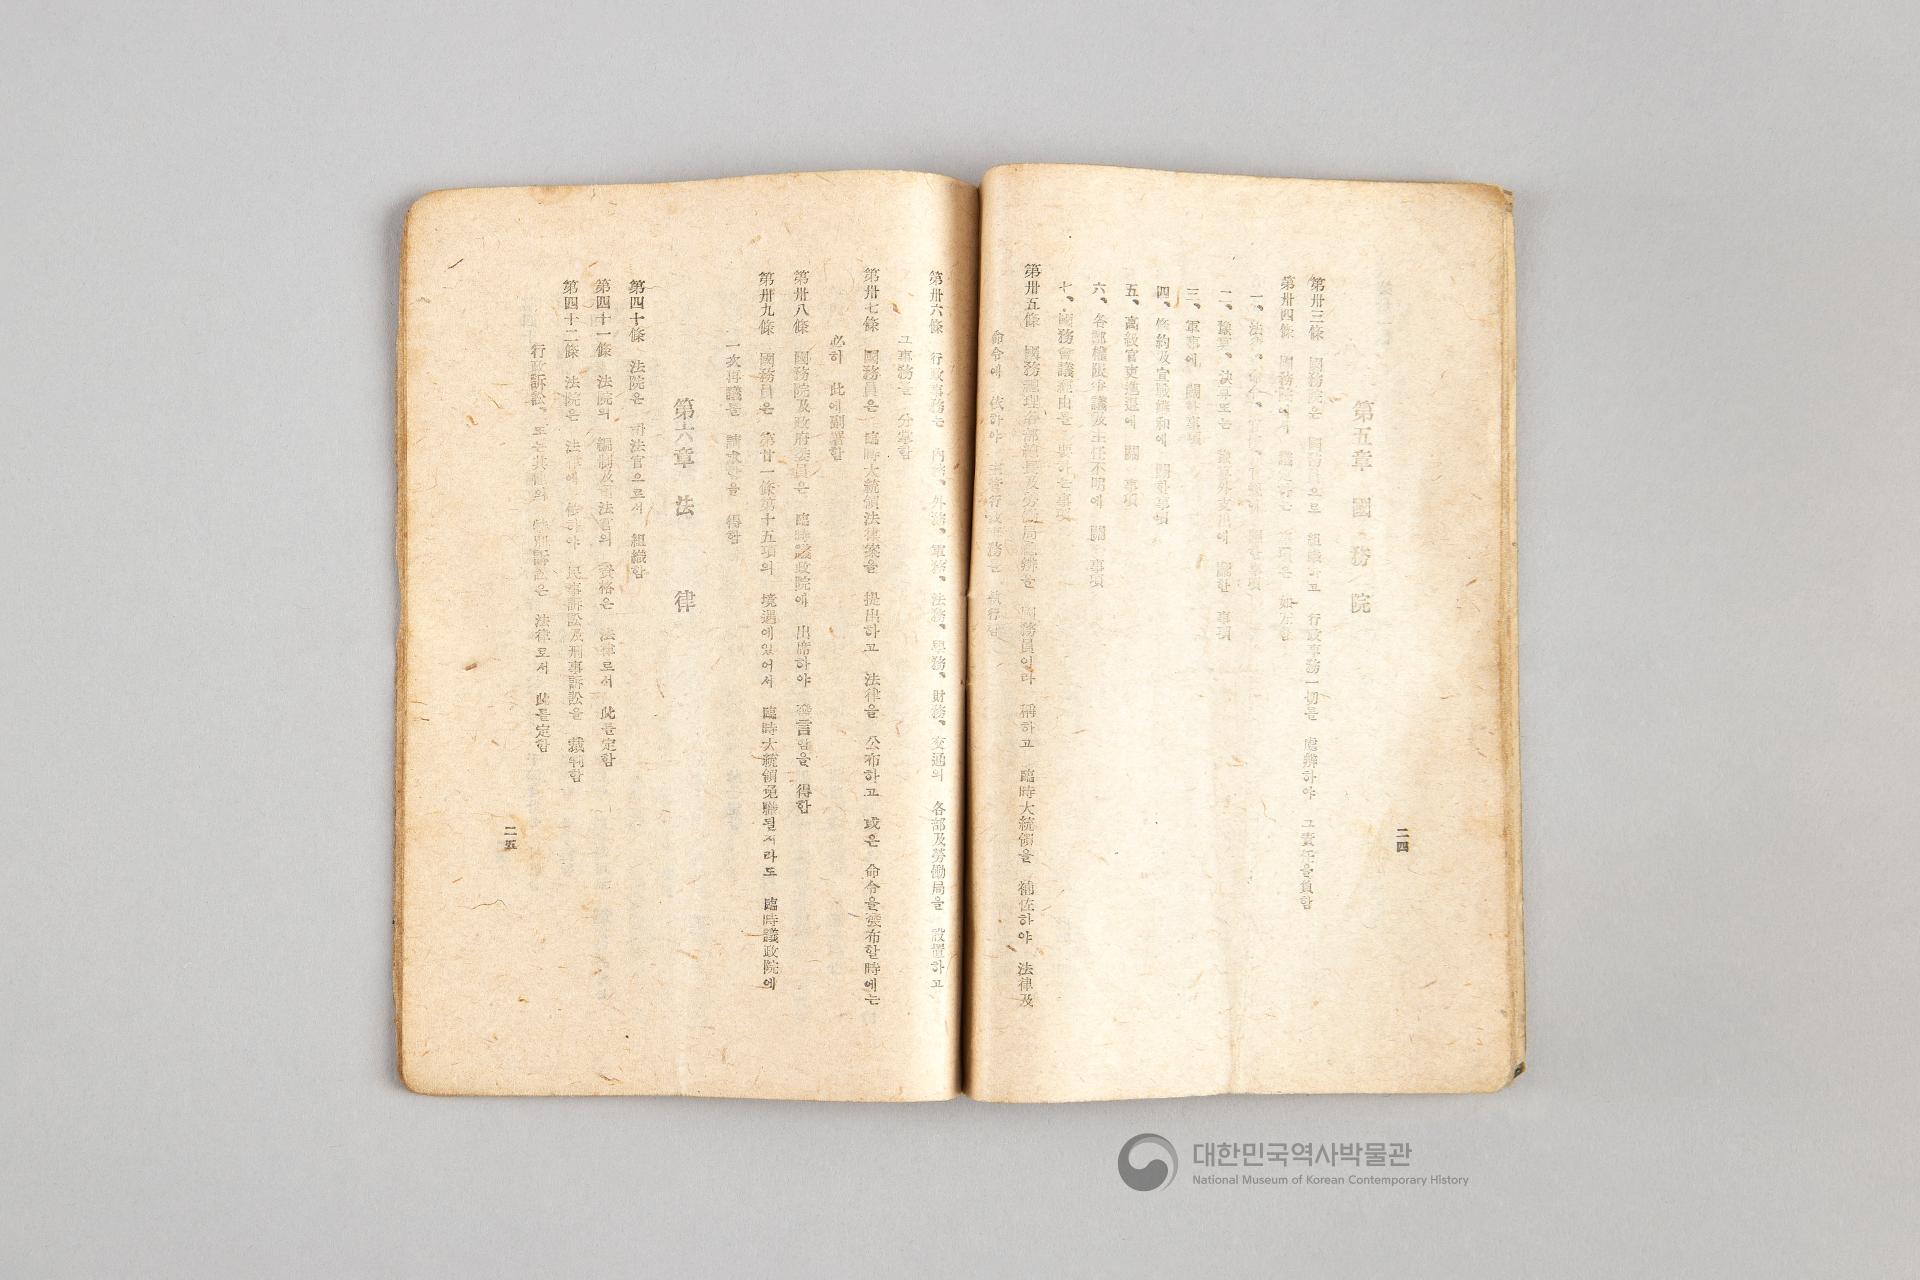 第五章 國務院
第卅三條 國務院은 國務員으로 組織하고 行政事務一切를 處辨하야 그責任을負함
第卅四條 國務院에서 議 事項은 如左함
一、法 命令、 官 에 關한事項
二、豫算、決算또는 豫算外支出에 關한 事項
三、軍事에 關한事項
四、條約及宣戰媾和에 關한事項
五、高級官吏進退에 關 事項
六、各部權限爭議及主任不明에 關 事項
七、國務會議經由를 要하는事項
第卅五條 國務總理各部總長及勞働局總辨을 國務員이라 稱하고 臨時大統領을 補佐하야 法律及
命令에 依하야 主管行政事務를 執行함
二四
第卅六條 行政事務는 內務、外務、軍務、法務、學務、財務、交通의 各部及勞働局을 設置하고
그事務를 分掌함
第卅七條 國務員은 臨時大統領法律案을 提出하고 法律을 公布하고 或은 命令을發布할時에는
必히 此에副署함
第卅八條 國務院及政府委員은 臨時議政院에 出席하야 發言함을 得함
第卅九條 國務員은 第廿一條第十五項의 境遇에있어서 臨時大統領免職될지라도 臨時議政院에
一次再議를 請求함을 得함
第六章 法律
第四十條 法院은 司法官으로서 組織함
第四十一條 法院의 編制及司法官의 資格은 法律로서 此를定함
第四十二條 法院은 法律에 依하야 民事訴訟及刑事訴訟을 裁判함
行政訴訟、또는其他의 特別訴訟은 法律로서 此를定함
二五
대한민국역사박물관
National Museum of Korean Contemporary History